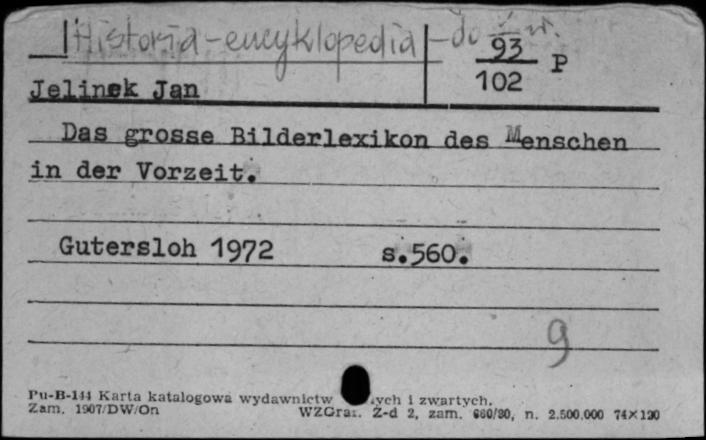 Historia - encyklopedia - do
93
102 P
Jelinek Jan
Das grosse Bilderlexikon des Menschen
in der Vorzeit.
Gutersloh 1972 s.560.
9
Pu-B-144 Karta katalogowa wydawnictw ych i zwartych.
Zam. 1907/DW/On WZGraf. Z-d 2, zam. 660/80, n. 2.500.000 74×120